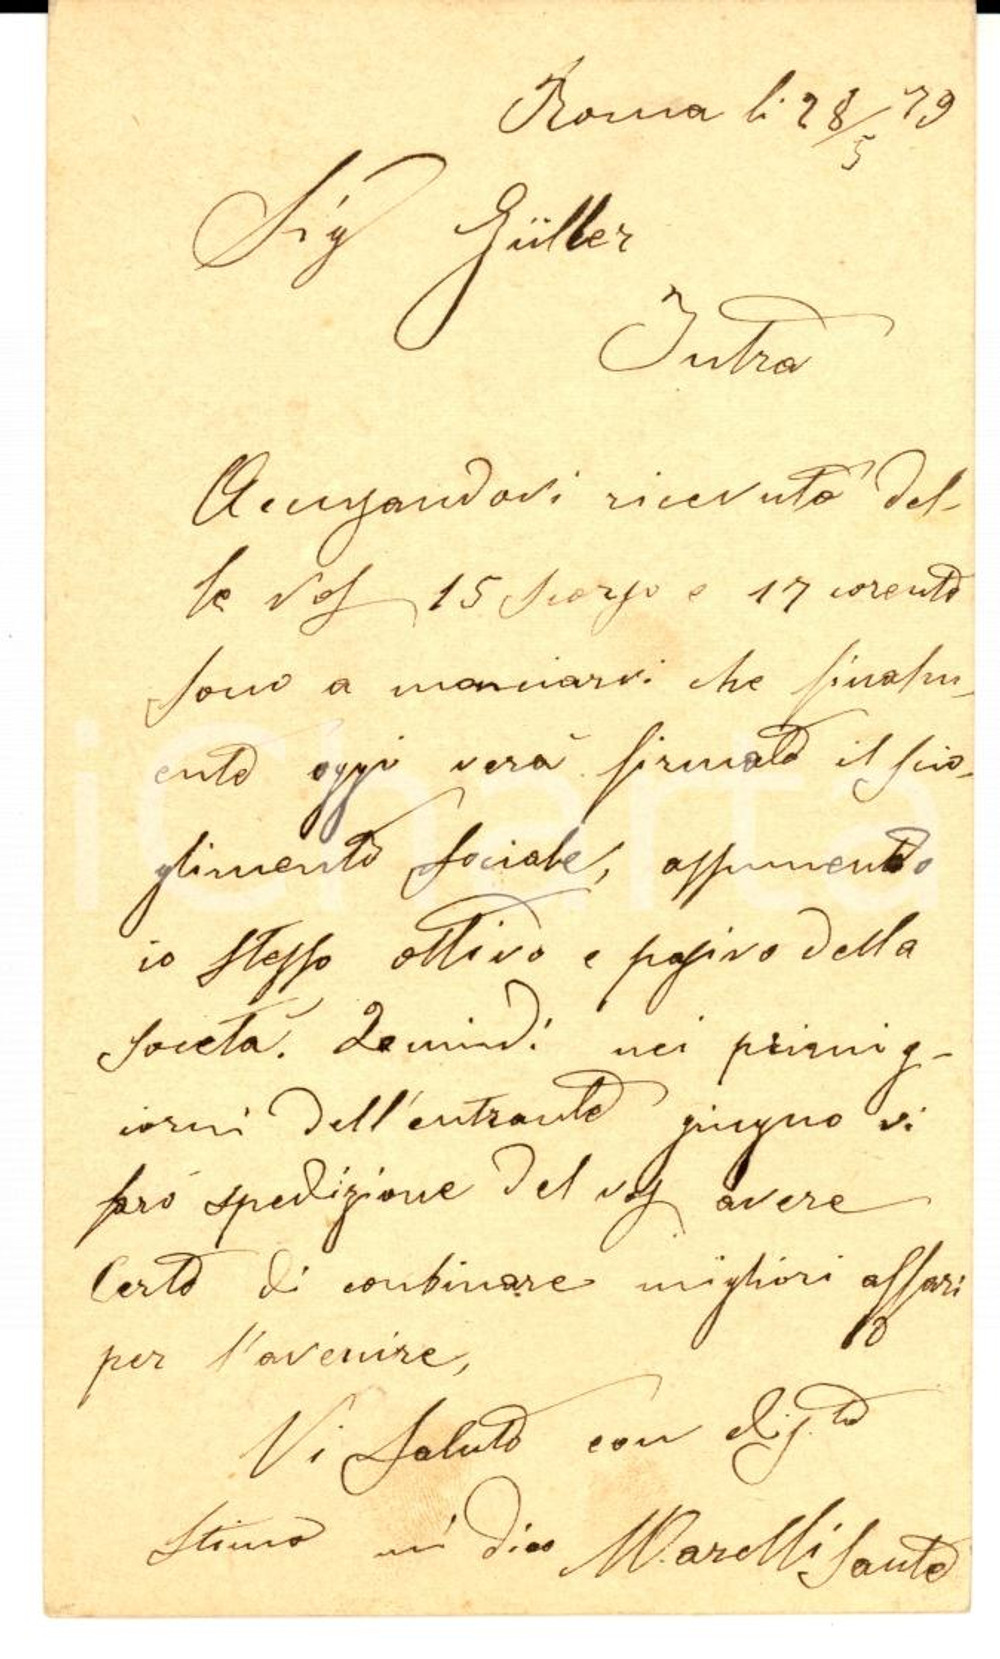 Roma li 28/5 79
Sig Güller
Intra
Accusandovi ricevuta del-
le vos 15 scorso e 17 corente
sono a manciarvi che finalm-
ente oggi verà firmato il scio-
glimento Sociale, assumendo
io stesso attivo e passivo della
Società. Quindi nei primi g-
iorni dell'entrante giugno vi
farò spedizione del vos avere
Certo di conbinare migliori affari
per l'avenire,
Vi Saluto con dis.ta
Stima mi dico Marelli Sante
icharta